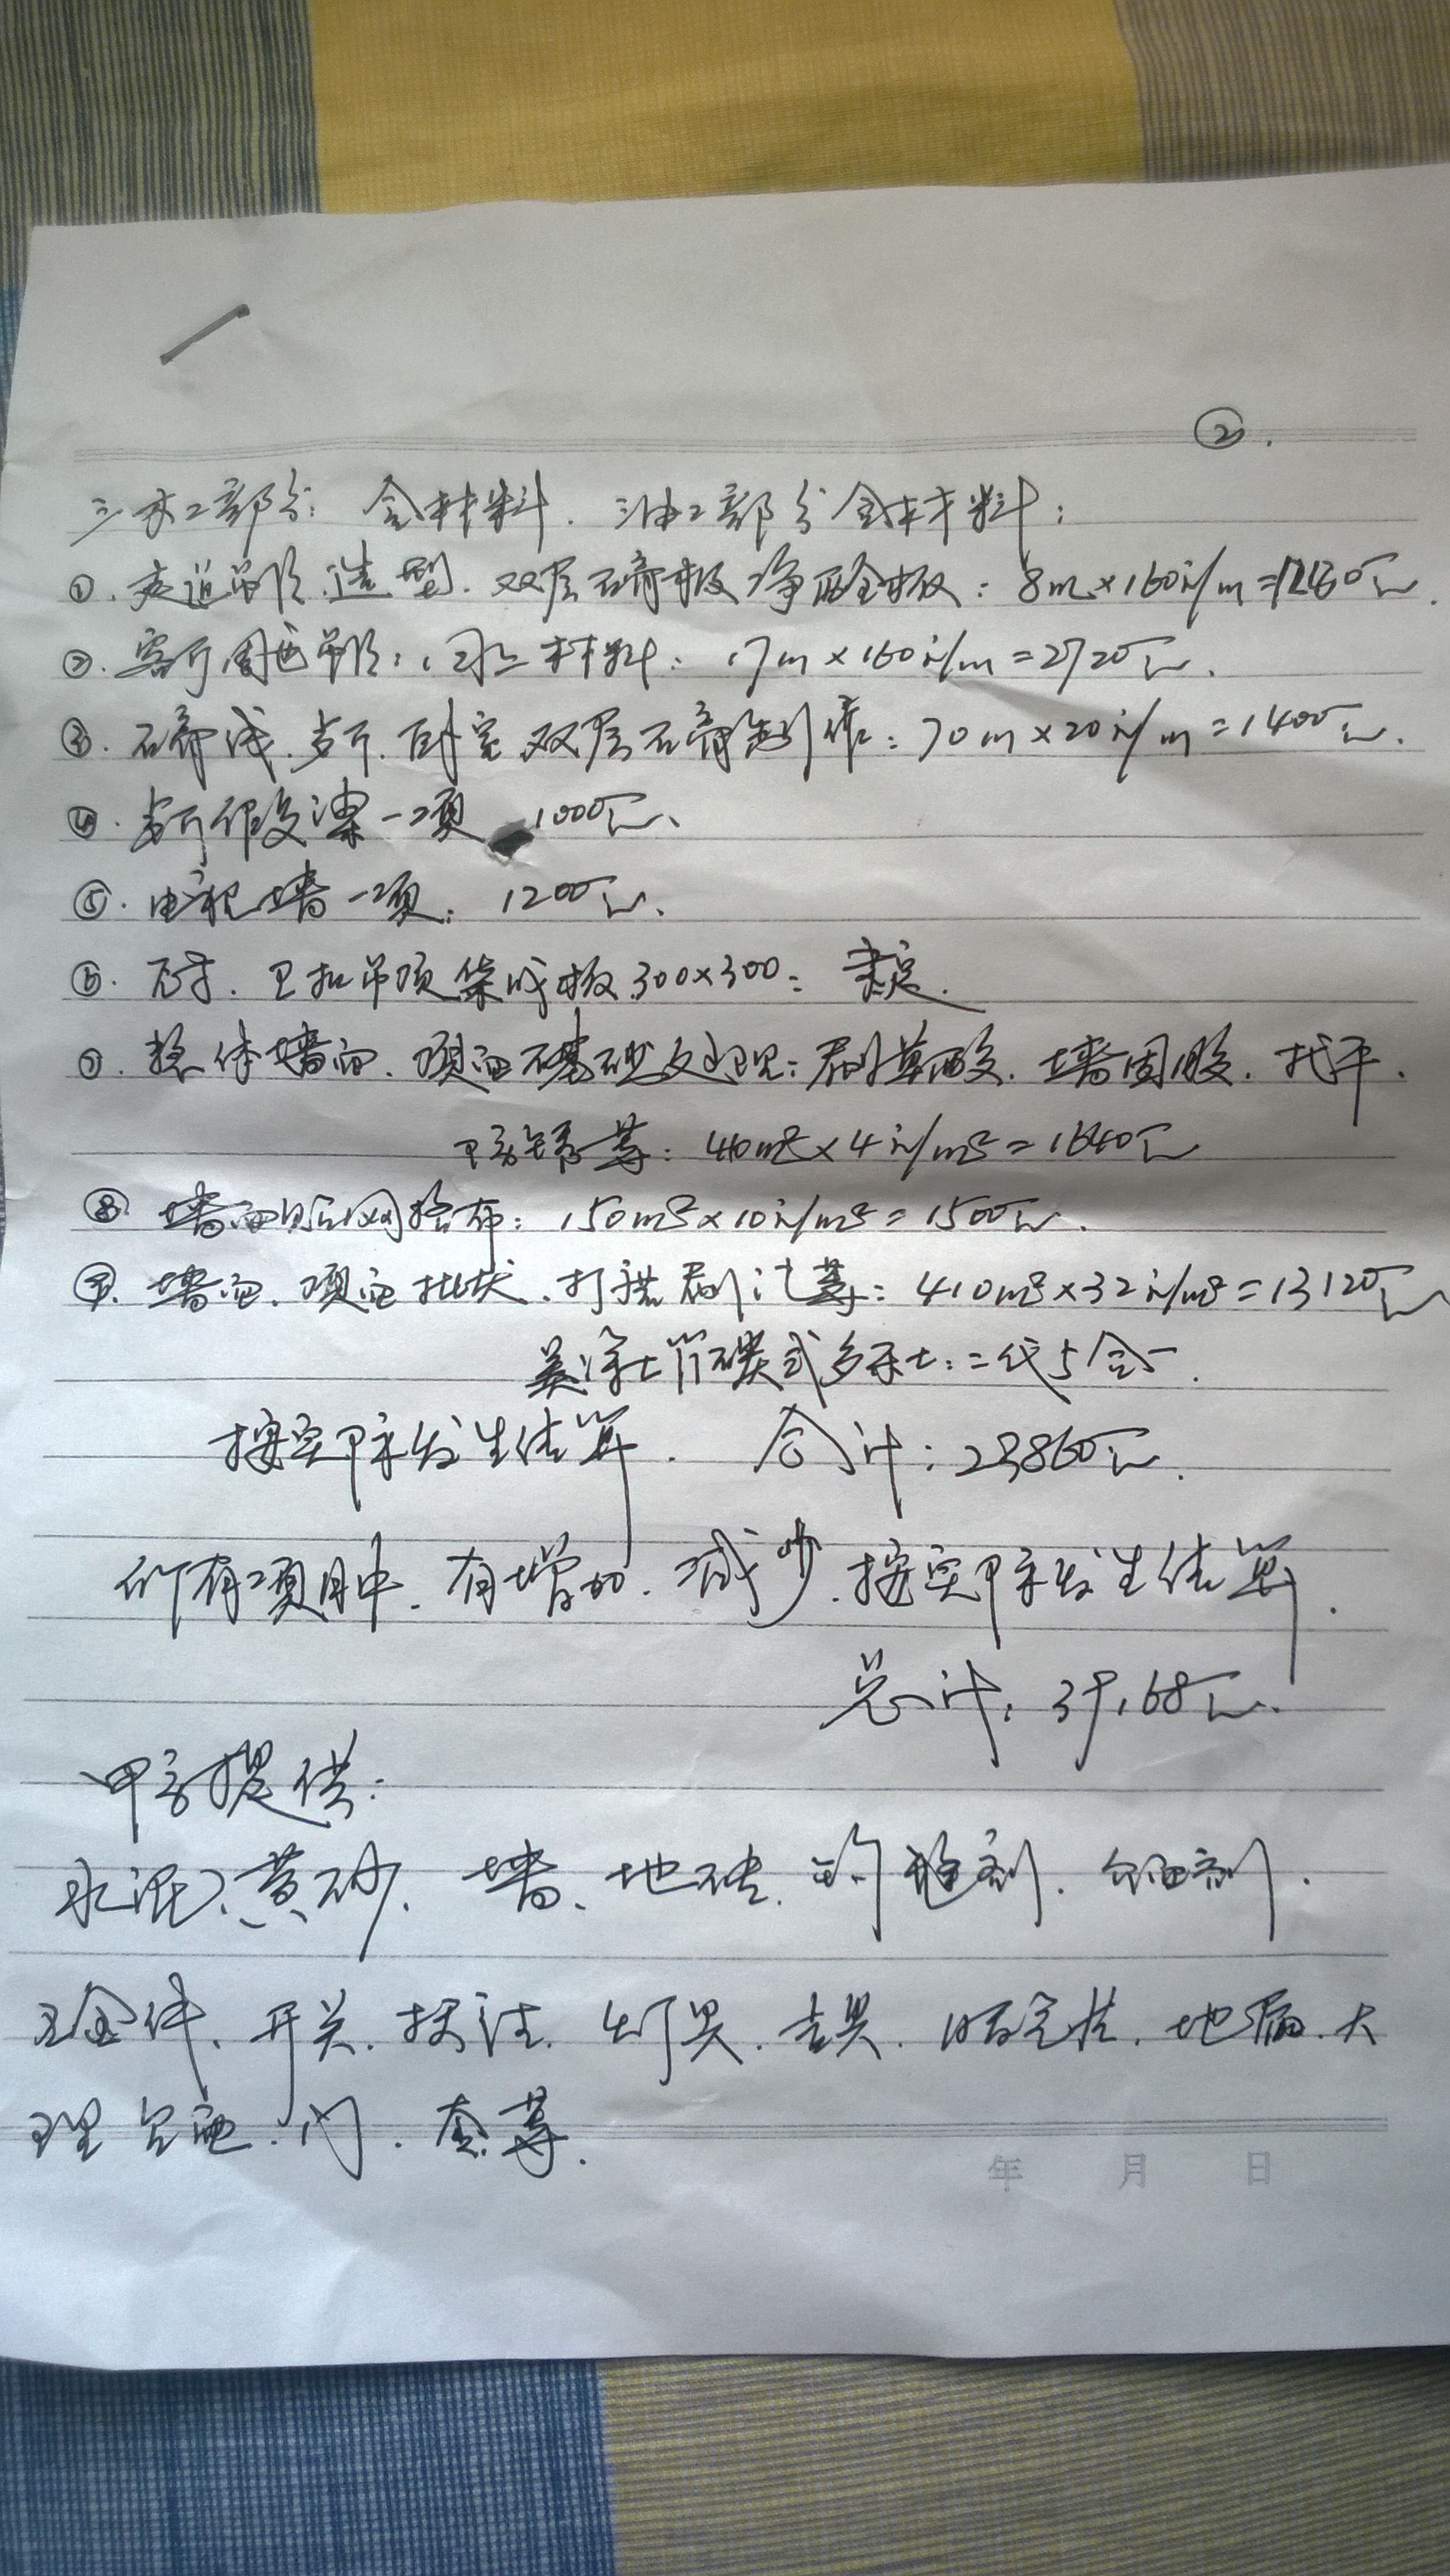 ②.
三木工部分: 含材料. 油工部分含材料:
①. 走道吊顶. 造型. 双层石膏板 净醛全板: 8m×160元/m=1280元.
②. 客厅周边吊顶: 同上材料: 17m×160元/m=2720元.
③. 石膏线. 客厅. 卧室 双层石膏制作: 70m×20元/m=1400元.
④. 客厅假梁一项 1000元.
⑤. 电视墙一项: 1200元.
⑥. 厨. 卫扣吊顶集成板 300×300: 未定.
⑦. 整体墙面. 顶面基础处理: 刷草酸. 墙固胶. 找平.
防锈等: 410m²×4元/m²=1640元
⑧ 墙面贴网格布: 150m²×10元/m²=1500元.
⑨. 墙面. 顶面批灰. 打磨刷漆等: 410m²×32元/m²=13120元
美涂士 二代5合一.
按实际发生结算. 合计: 23860元.
所有项目中. 有增加. 减少. 按实际发生结算.
总计: 39168元.
甲方提供:
水泥、黄砂. 墙. 地砖. 勾缝剂.
五金件. 开关. 插座. 灯具. 洁具. 地漏. 大
理石. 门. 套等.
年 月 日